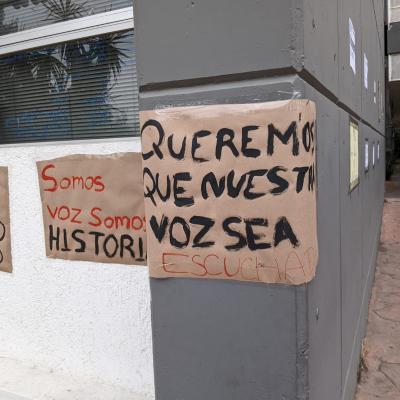 Somos
voz Somos
HISTORIA
QUEREMOS
QUE NUESTRA
VOZ SEA
ESCUCHAD